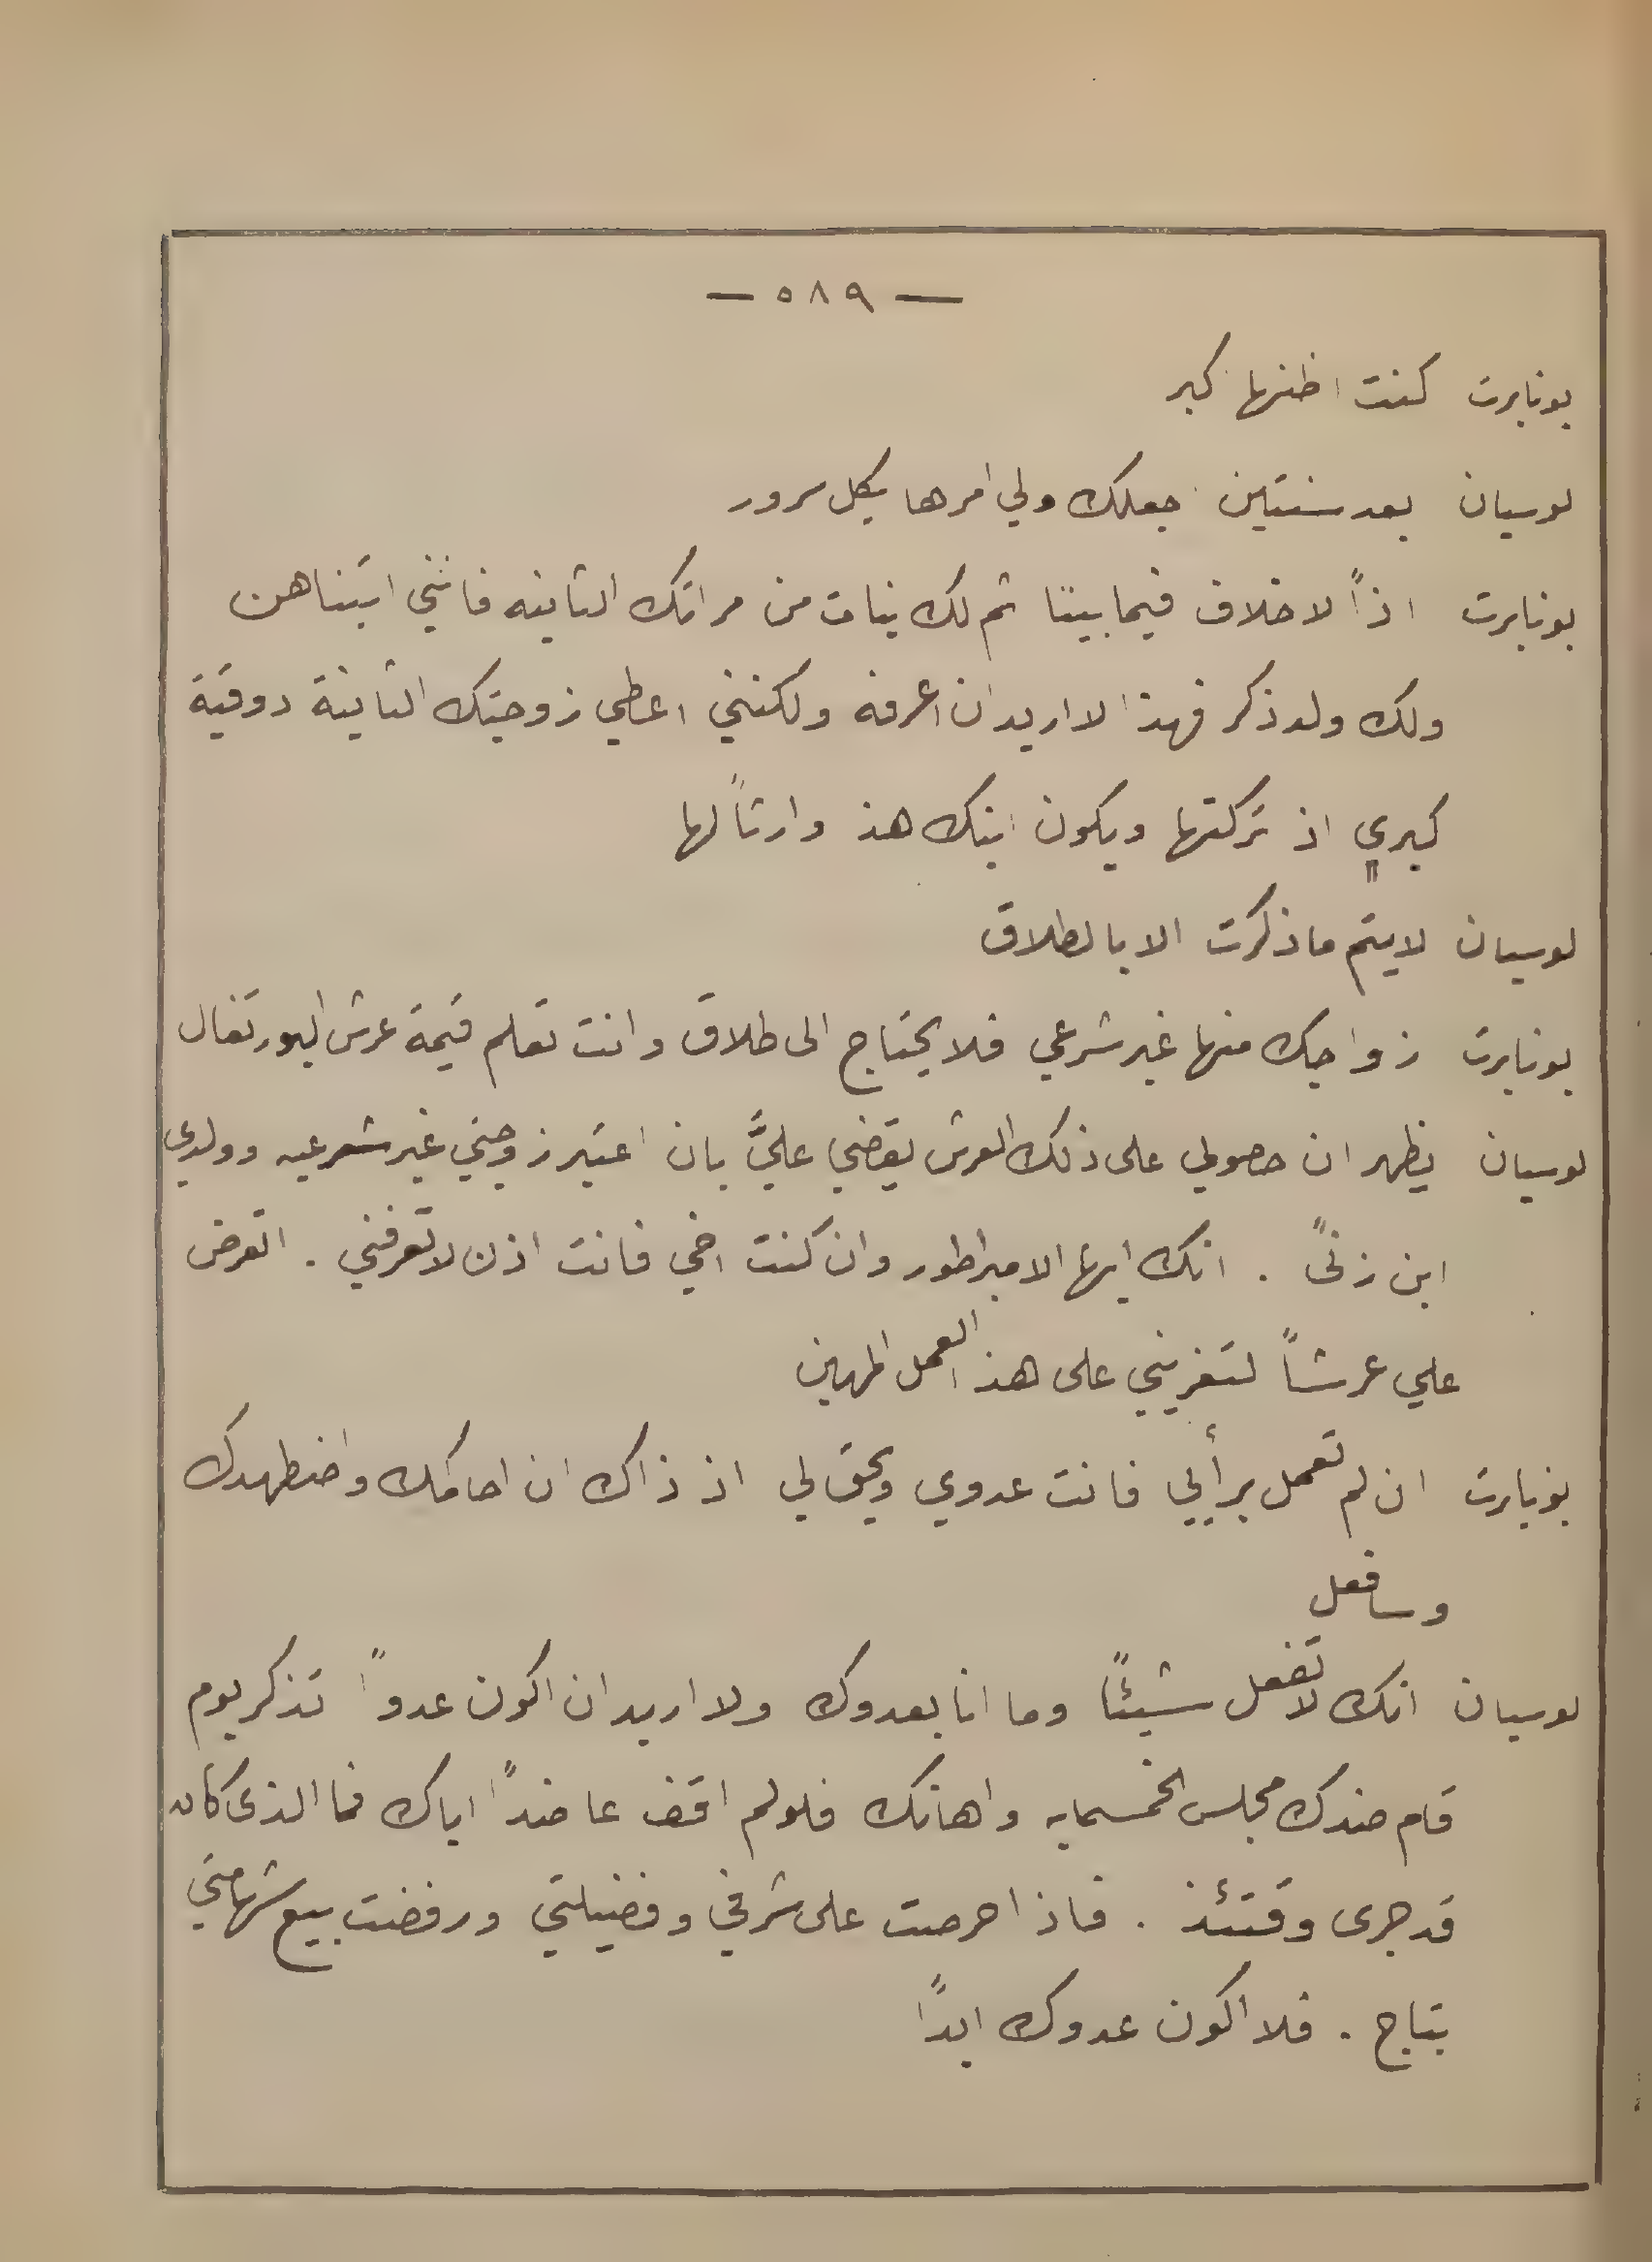 — ٥٨٩ —
بونابرت كنت اظنها اكبر
لوسيان بعد سنتين اجعلك ولي امرها بكل سرور
بونابرت اذاً لا خلاف فيما بيننا ثم لك بنات من مراتك الثانيه فانني اتبناهن
ولك ولد ذكر فهذا لا اريد ان اعرفه ولكنني اعطي زوجتك الثانية دوقية
كبري اذ تركتها ويكون ابنك هذا وارثاً لها
لوسيان لا يتم ما ذكرت الا بالطلاق
بونابرت زواجك منها غير شرعي فلا يحتاج الى طلاق وانت تعلم قيمة عرش البورتغال
لوسيان يظهر ان حصولي على ذلك العرش يقضي عليَّ بان اعتبر زوجتي غير شرعيه وولدي
ابن زنىً . انك ايها الامبراطور وان كنت اخي فانت اذن لا تعرفني . اتعرض
علي عرشاً لتغريني على هذا العمل المهين
بونابرت ان لم تعمل برأيي فانت عدوي ويحق لي اذ ذاك ان احاكمك واضطهدك
وسافعل
لوسيان انك لا تفعل شيئًا وما انا بعدوك ولا اريد ان اكون عدواً تذكر يوم
قام ضدك مجلس الخمسمايه واهانك فلولم اقف عاضداً اياك فما الذى كان
قد جرى وقتئذ . فاذا حرصت على شرفي وفضيلتي ورفضت بيع شهامتي
بتاج . فلا اكون عدوك ابداً